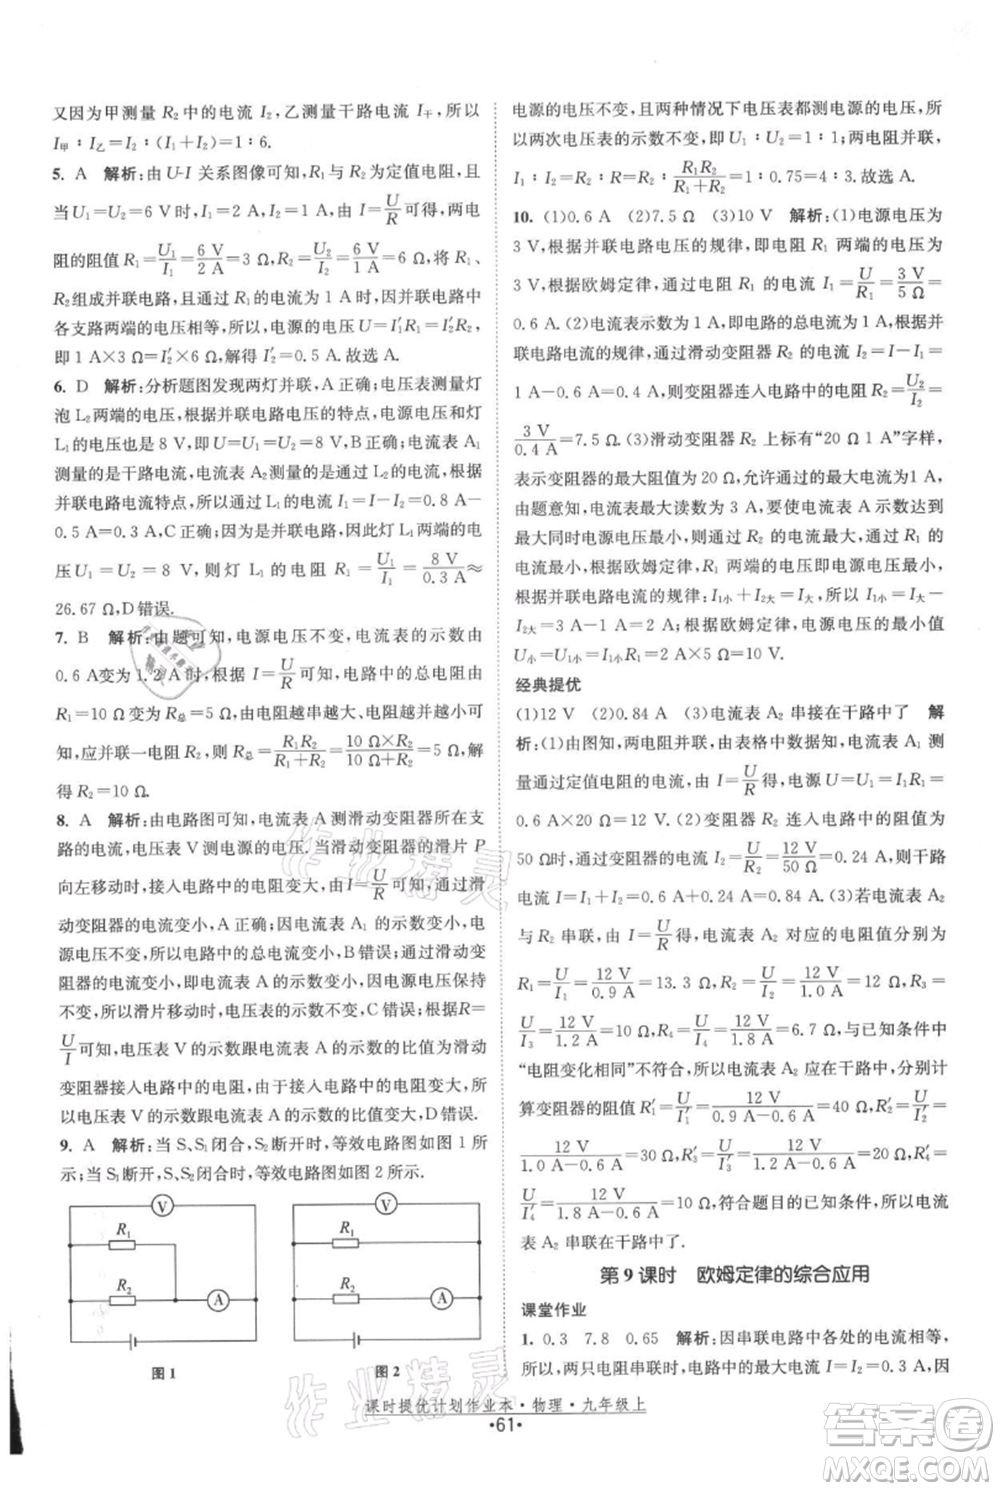 又因为甲测量 R₂ 中的电流 I₂,乙测量干路电流 I干,所以
I甲∶I乙=I₂∶(I₁+I₂)=1∶6.
5. A 解析:由 U-I 关系图像可知,R₁ 与 R₂ 为定值电阻,且
当 U₁=U₂=6 V 时,I₁=2 A,I₂=1 A,由 I=U/R 可得,两电
阻的阻值 R₁=U₁/I₁=6 V/2 A=3 Ω,R₂=U₂/I₂=6 V/1 A=6 Ω;将 R₁、
R₂组成并联电路,且通过 R₁ 的电流为 1 A 时,并联电路中
各支路两端的电压相等,所以,电源的电压 U=I′₁R₁=I′₂R₂,
即 1 A×3 Ω=I′₂×6 Ω,解得 I′₂=0.5 A.故选 A.
6. D 解析:分析题图发现两灯并联,A 正确;电压表测量灯
泡 L₂ 两端的电压,根据并联电路的特点,电源电压和灯
L₁的电压也是 8 V,即 U=U₁=U₂=8 V,B 正确;电流表 A₁
测量的是干路电流,电流表 A₂测量的是通过灯 L₂ 的电流,根
据并联电路电流特点,所以通过 L₁ 的电流 I₁=I-I₂=0.8 A-
0.5 A=0.3 A,C 正确;因为是并联电路,因此灯 L₁ 两端的电
压U₁=U=8 V,则灯 L₁ 的电阻 R₁=U₁/I₁=8 V/0.3 A≈
26.67 Ω,D 错误.
7. B 解析:由题可知,电源电压不变,电流表的示数由
0.6 A变为1.2 A时,根据 I=U/R可知,电路的总电阻由
R₁=10 Ω变为 R总=5 Ω,由电阻越串越大,越并越小可
知,应并联一电阻 R₂,则 R总=R₁R₂/(R₁+R₂)=10 Ω×R₂/(10 Ω+R₂)=5 Ω,解
得 R₂=10 Ω.
8. A 解析:由电路图可知,电流表 A₁ 测滑动变阻器所在支
路的电流,电压表 V 测电源的电压.当滑动变阻器的滑片 P
向左移动时,接入电路中的电阻变大,由 I=U/R可知,通过滑
动变阻器的电流变小,即电流表 A₁ 的示数变小,A 正确;因电
源电压不变,所以,滑片移动时,电压表 V 的示数不变,B 错误;
因通过 R₁ 的电流不变,通过滑动变阻器的电流变小,并联电路
中干路电流等于各支路电流之和,所以电路中的总电流变小,即电流表 A 的示数变小,C 错误;根据 R=
U/I可知,电压表 V 的示数跟电流表 A₁ 的示数的比值为滑动
变阻器接入电路中的电阻,由于滑动变阻器接入电路中的电阻变
大,故电压表 V 的示数跟电流表 A₁ 的示数的比值变大,D 错误.
9. A 解析:当 S、S₁闭合,S₂断开时,等效电路图如图 1 所
示;当 S₁断开,S、S₂闭合时,等效电路图如图 2 所示.
V R₁ R₂ A 图 1
V R₁ R₂ A 图 2
电源的电压不变,且两种情况下电压表都测电源的电压,所
以两次电压表的示数不变,即 U₁∶U₂=1∶1;由图可知,
I₁∶I₂=U/R₁∶U/(R₁R₂/(R₁+R₂))=1∶0.75=4∶3.故选 A.
10. (1)0.6 A (2)7.5 Ω (3)10 V 解析:(1)电源电压为
3 V,根据并联电路电压的规律,即电阻 R₁ 两端的电压为
3 V,根据欧姆定律,通过电阻 R₁ 的电流 I₁=U/R₁=3 V/5 Ω=
0.6 A.(2)电流表示数为 1 A,即电路的总电流为 1 A,根据并联
电路电流的规律,通过滑动变阻器 R₂ 的电流 I₂=I-I₁=
1 A-0.6 A=0.4 A,则变阻器连入电路中的电阻 R₂=U₂/I₂=
3 V/0.4 A=7.5 Ω.(3)滑动变阻器 R₂ 上标有“20 Ω 1 A”字样,
表示变阻器的最大阻值为 20 Ω,允许通过的最大电流为1 A;
由题意知,电流表的最大读数为 3 A,当电流表 A 示数达到
最大同时电源电压最小,R₂ 的电流最大,通过 R₁ 的
电流最小,则根据欧姆定律可知,此时电源电压最小.根据并
联电路电流的规律:I₁小+I₂大=I大,所以 I₁小=I大-
I₂大=3 A-1 A=2 A,由欧姆定律,电源电压的最小值
U小=I₁小R₁=2 A×5 Ω=10 V.
经典提优
(1)12 V (2)0.84 A (3)电流表 A₂ 串接在干路中了 解
析:(1)由图知,两电阻并联,由表格中数据知,电流表 A₁ 测
量通过定值电阻的电流,由 I=U/R得,电源电压 U=U₁=I₁R₁=
0.6 A×20 Ω=12 V.(2)当变阻器 R₂ 连入电路中的电阻为
50 Ω时,通过变阻器的电流 I₂=U/R₂=12 V/50 Ω=0.24 A,则干路
电流 I=I₁+I₂=0.6 A+0.24 A=0.84 A.(3)若电流表 A₂
与 R₂ 串联,由 I=U/R得,电流表 A₂ 对应的电阻值分别为
R₁=U/I₁=12 V/0.9 A=13.3 Ω,R₂=U/I₂=12 V/1.0 A=12 Ω,R₃=
U/I₃=12 V/1.2 A=10 Ω,R₄=U/I₄=12 V/1.8 A=6.7 Ω,与已知条件中
“电阻变化相同”不符合,因此电流表 A₂ 应在干路中,则计
算变阻器的电阻 R′₁=U/I′₁=12 V/(0.9 A-0.6 A)=40 Ω,R′₂=U/I′₂=
12 V/(1.0 A-0.6 A)=30 Ω,R′₃=U/I′₃=12 V/(1.2 A-0.6 A)=20 Ω,R′₄=
U/I′₄=12 V/(1.8 A-0.6 A)=10 Ω,符合题目的已知条件,所以电流
表 A₂ 串联在干路中了.
第 9 课时 欧姆定律的综合应用
课堂作业
1. 0.3 7.8 0.65 解析:因串联电路中各处的电流相等,
所以,两只电阻串联时,电路中的最大电流 I=I₁=0.3 A,因
课时提优计划作业本·物理·九年级上
·61·
作业精灵
作业精灵
答案圈
MXQE.COM